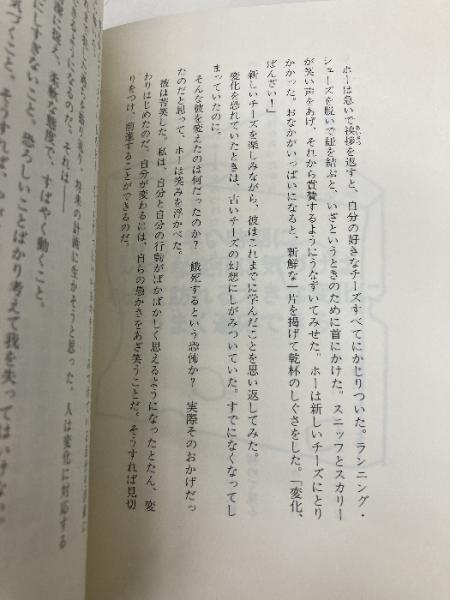 ホーは急いで挨拶を返すと、自分の好きなチーズすべてにかじりついた。ランニング・
シューズを脱いで紐を結ぶと、いざというときのために首にかけた。スニッフとスカリー
が笑い声をあげ、それから賞賛するようにうなずいてみせた。ホーは新しいチーズにとり
かかった。おなかがいっぱいになると、新鮮な一片を掲げて乾杯のしぐさをした。「変化、
ばんざい!」
新しいチーズを楽しみながら、彼はこれまでに学んだことを思い返してみた。
変化を恐れていたときは、古いチーズの幻想にしがみついていた。すでになくなってし
まっていたのに。
そんな彼を変えたのは何だったのか? 餓死するという恐怖か? 実際そのおかげだっ
たのだと思って、ホーは笑みを浮かべた。
彼は苦笑した。私は、自分と自分の行動がばかばかしく思えるようになったとたん、変
わりはじめたのだ。自分が変わるには、自らの愚かさをあざ笑うことだ。そうすれば見切
りをつけ、前進することができるのだ。
将来の計画に生かそうと思った。人は変化に対応する
できるようになるのだ。それは
柔軟な態度で、すばやく動くこと。
しすぎないこと。恐ろしいことばかり考えて我を失ってはいけない。
気づくこと。そうすれば